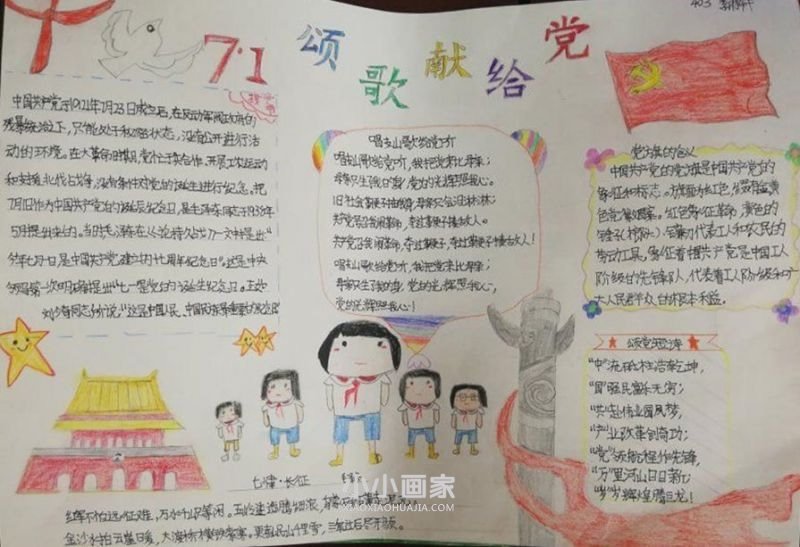 403
7·1
颂歌献给党
中国共产党于1921年7月23日成立后,在反动军阀政府的
残暴统治之下,只能处于秘密状态,没有公开进行活
动的环境。在大革命时期,党忙于国共合作、开展工农运动
和支援北伐战争,没有条件对党的诞生进行纪念。把
7月1日作为中国共产党的诞辰纪念日,是毛泽东同志于1938年
5月提出来的。当时,毛泽东在《论持久战》一文中提出:"
今年七月一日是中国共产党建立的十七周年纪念日"这是中央
唱支山歌给党听
唱支山歌给党听,我把党来比母亲;
母亲只生我的身,党的光辉照我心。
旧社会鞭子抽我身,母亲只会泪淋淋;
共产党号召我闹革命,夺过鞭子揍敌人!
共产党号召我闹革命,夺过鞭子揍敌人!
唱支山歌给党听,我把党来比母亲;
母亲只生我的身,党的光辉照我心,
党的光辉照我心!
党旗的含义
中国共产党的党旗是中国共产党的
象征和标志。旗面为红色,缀有金黄
色党徽图案。红色象征革命,黄色的
锤子、镰刀代表工人和农民的
劳动工具,象征着中国共产党是中国工人
阶级的先锋队,代表着工人阶级和广
大人民群众的根本利益。
颂党短诗
"中"流砥柱浩乾坤,
"国"强民富永无穷;
"共"赴伟业圆风梦,
"产"业改革创奇功;
"党"领航程作先锋,
"万"里河山日日新,
"岁"岁辉煌腾巨龙!
七律·长征
红军不怕远征难,万水千山只等闲。五岭逶迤腾细浪,
金沙水拍云崖暖,大渡桥横铁索寒。更喜岷山千里雪,三军过后尽开颜。
小小画家
XIAOXIAOHUAJIA.COM